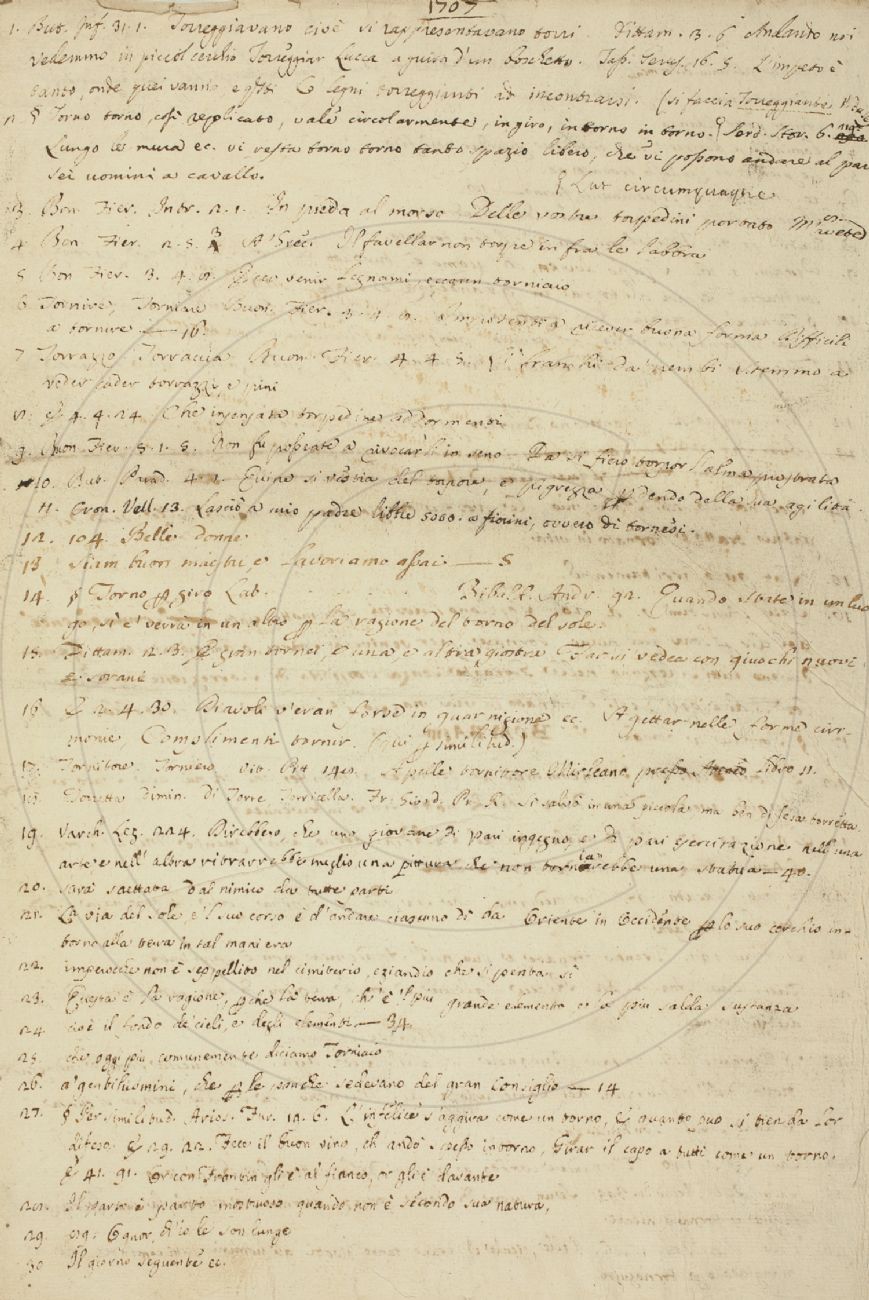 1707
1. But. Inf. 31. 1. Torreggiavano cioè vi rappresentavano torri. Dittam. 3. 6 Andando noi
vedemmo in piccol cerchio Torreggiar Lucca a guisa d'un boschetto. Tass. Gerus. 16. 5. L'impeto è
tanto, onde quei vanno e questi Co legni torreggianti ad incontrarsi. (si faccia Torreggiante
§ Torno torno, così replicato, vale circolarmente, in giro, intorno intorno. Serd. Stor. 6.
Lungo le mura ec. vi resta torno torno tanto spazio libero, che vi possono andare al pari
sei uomini a cavallo.
§ Lat circumquaque
3. Bon. Fier. Intr. 2. 1. In preda al morso Delle vostre torpedini
4. Bon. Fier. 2. 5. 3 Il favellar non torpe in fra le labbra
5 Bon Fier. 3. 4. venir legnami, torniaio
6 Tornire, Tornire Buon. Fier. 3. 4. ricever buona forma Difficili
a tornire — 16.
7 Torrazzo, Torraccia Buon. Fier. 4. 4. 5. Stemmo a
veder cader torrazzi, e pini
E 4. 4. 24. Che insensata torpedine addormenti
9. Buon. Fier. 5. 1. 5. Non fu possente a revocarli in seno l'alma prostrata
10. But. Purd. 4. 1. Evina si vestia del torpore, e pigrezza perdendo della sua agilità.
11. Cron. Vell. 13. Lasciò a mio padre libbre 5000. a fiorini, ovvero di tornesi.
12. 104. Belle donne
13 Siam buon maestri, e lavoriamo assai — 5
14. § Torno per giro Lat. Bibilt. Andr. 92. Quando state in un luo
go, sì è verra in un altro per la ragione del torno del sole.
15. Dittam. 2. 3. E gran tornei e una, e altra giostra Far si vedea con giuochi nuovi
e sovrani
16 E 2. 4. 30. Diavoli v'eran forse in guarnigione ec. A gettar nelle forme ceri-
monie Complimenti tornir. (qui per similitud.)
17. Tornitore. Torniero. Vit. Pit 140. Apelle tornitore Libro 11.
Torretta Dimin. Di Torre Torricella. Fr. Giord. Pr. R. Si salvò in una piccola ma ben difesa torretta.
19. Varch. Lez. 224. Direbbero, che uno giovane di pari ingegno e di pari esercitazione nell'una
arte e nell'altra ritrarrebbe meglio una pittura che non torniarebbe una statua — 40.
20. sarà saettata dal nimico da tutte parti
21. La via del sole e 'l suo corso è d'andare ciascuno dì da Oriente in Occidente per lo suo cerchio in-
torno alla terra in tal maniera
22. imperocche non è seppellito nel cimiterio, eziandio che si penta sì
23. Questa è la ragione, perche la terra, ch'è 'l più grande elemento e la piu salda sustanza
24 cioè il fondo de' cieli, e degli elementi — 34
25. che oggi più comunemente diciamo Torniaio
26. a' gentiluomini, che per le panche sedevano del gran Consiglio — 14
27. § Per similitud. Arios. Fur. 12. 6. L'infelice s'aggira come un torno, E quanto può si tien da lor
difeso. E 29. 22. Fece il buon vino, ch'andò spesso intorno, Girar il capo a tutti come un torno.
E 41. 91. Or con Frontin gli è al fianco, or gli è davante
Il parto è parto mostruoso quando non è secondo sua natura.
29. ognor, ch'io le son lunge
30 Il giorno seguente ec.